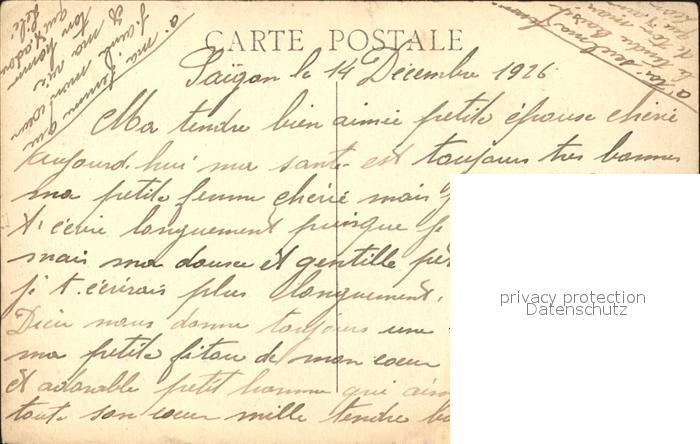 CARTE POSTALE
Saïgon le 14 Décembre 1926
Ma tendre bien aimée petite épouse chérie
aujourd'hui ma santé est toujours tres bonnes
ma petite femme chérie mais
t'écrire longuement puisque je
mais ma douce et gentille
je t'écrirais plus longuement.
Dieu nous donne toujours une
ma petite de mon coeur
et adorable petit homme qui
toute son coeur mille tendre
a ma femme que
j'aime mon coeur
et ma vie
ton homme
qui t'adore
a toi seul ma
privacy protection
Datenschutz